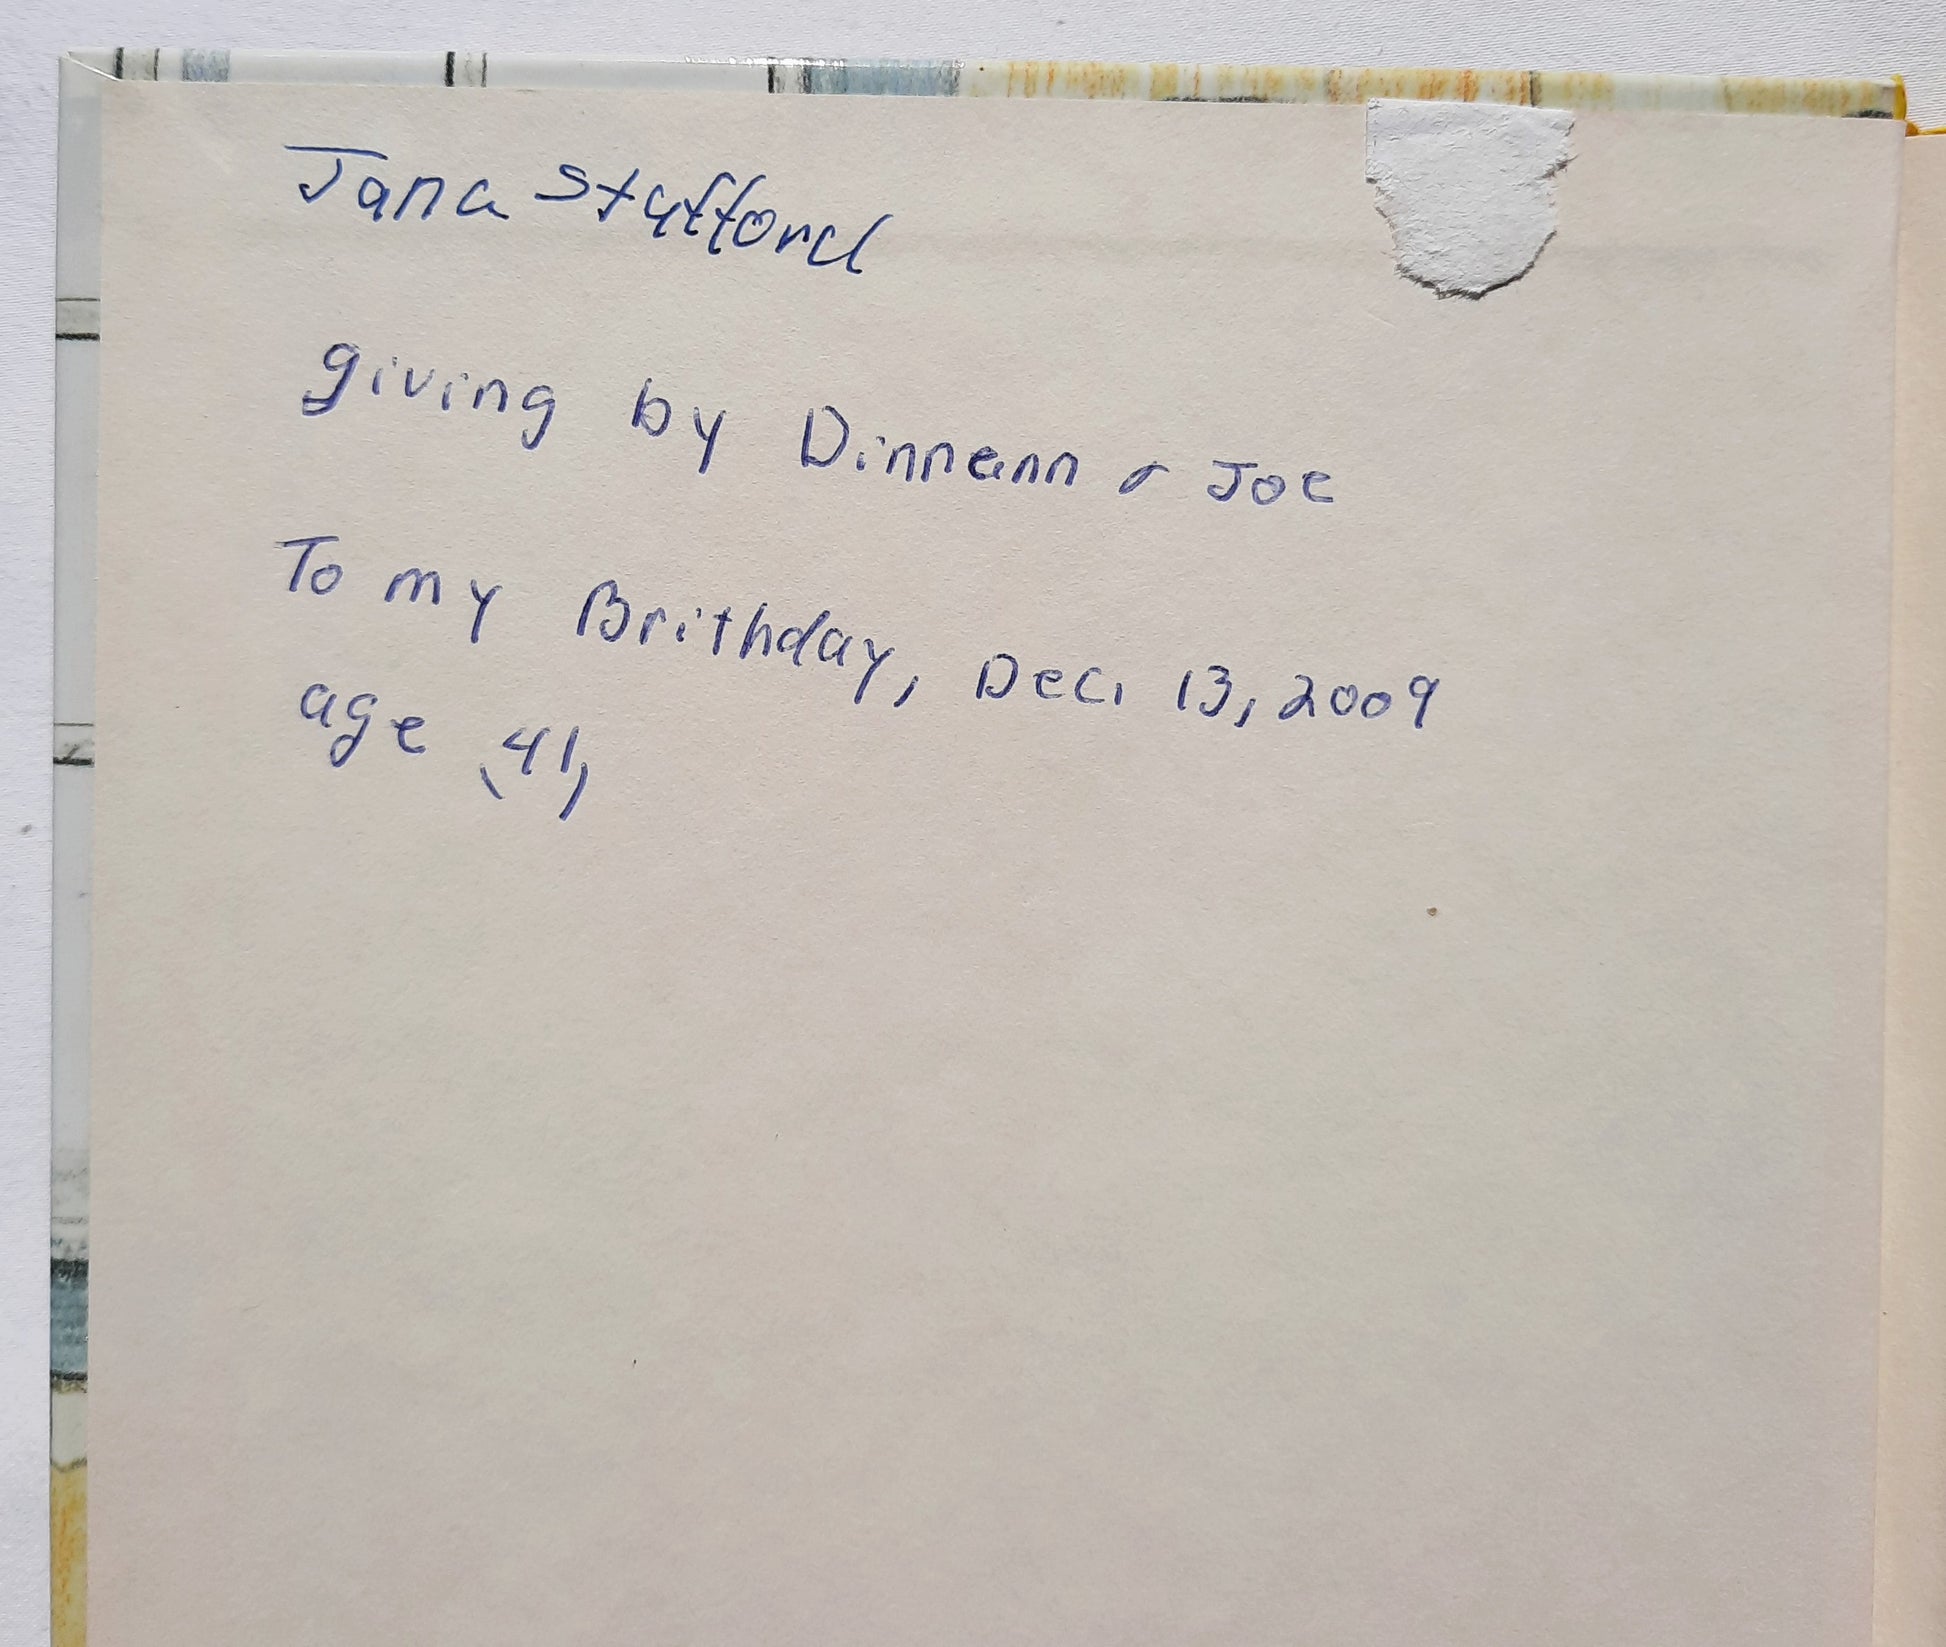 Jana Stafford
giving by Dinneann & Joe
To my Brithday, Dec. 13, 2009
age (41)